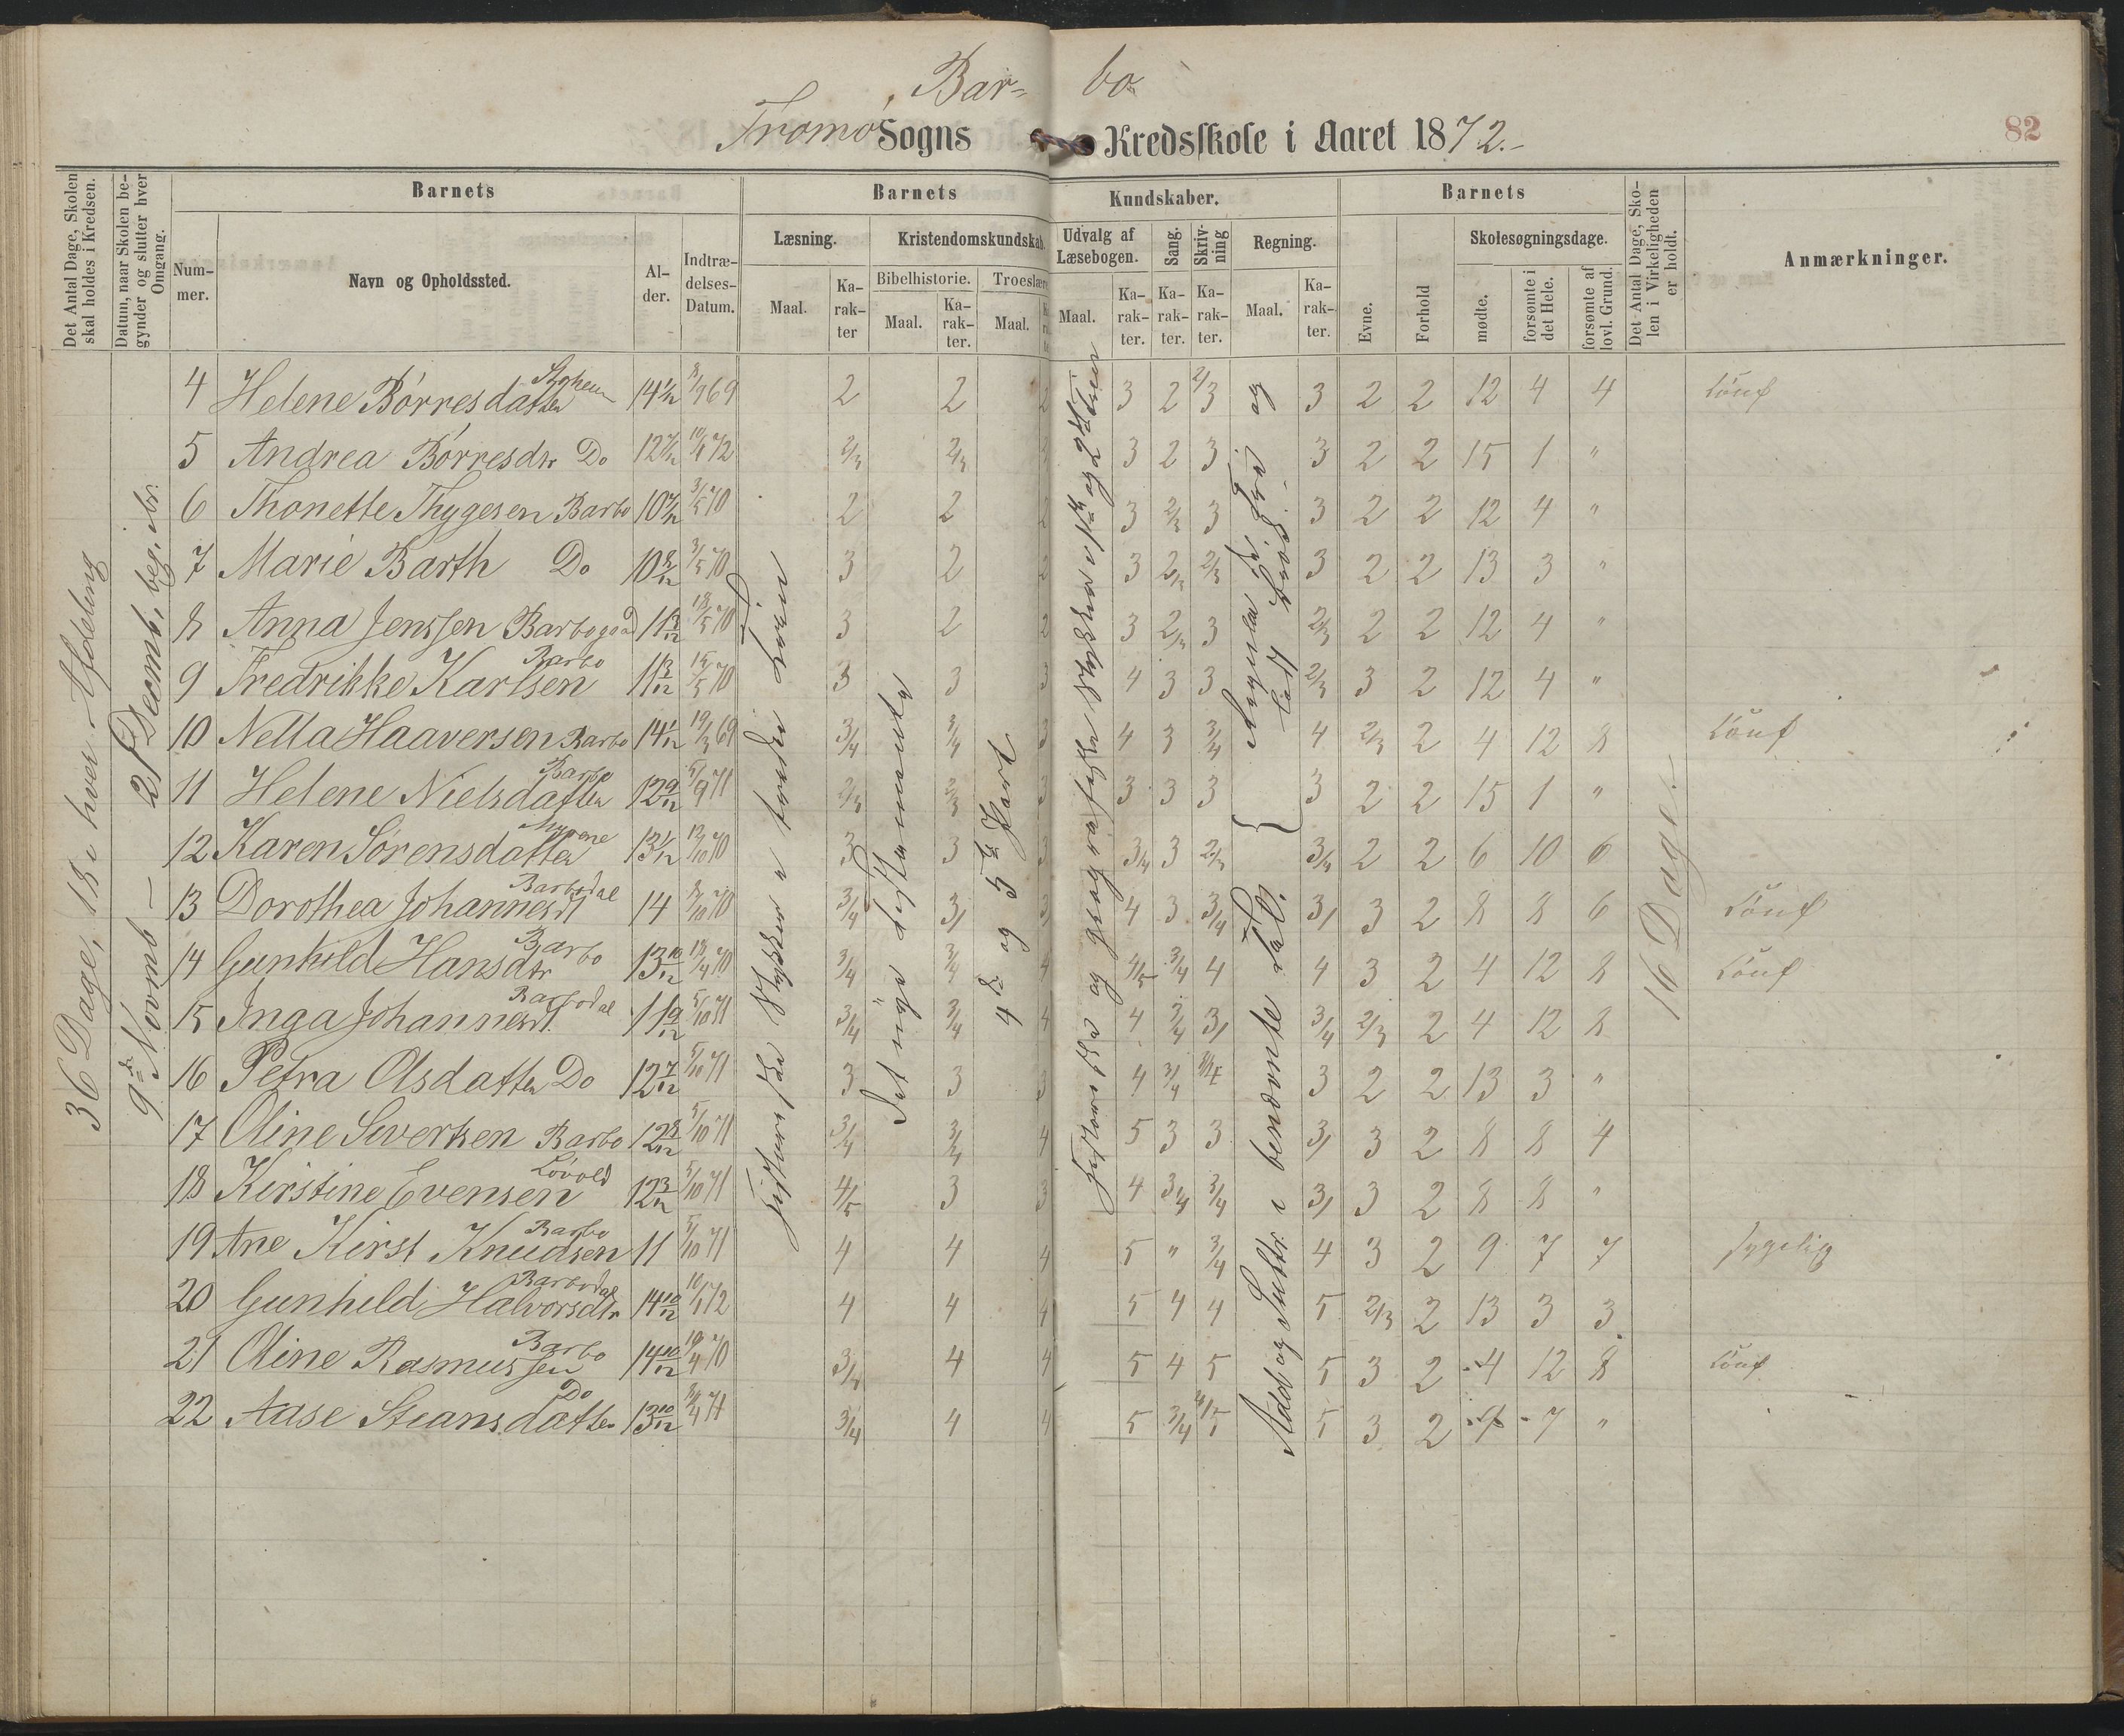 Bar- bo.
Tromø Sogns Kredsskole i Aaret 1872.-
82
Det Antal Dage, Skolen skal holdes i Kredsen.
Datum, naar Skolen begynder og slutter hver Omgang.
Barnets
Barnets Kundskaber.
Barnets
Det Antal Dage, Skolen i Virkeligheden er holdt.
Anmærkninger.
Nummer.
Navn og Opholdssted.
Alder.
Indtrædelses-Datum.
Læsning.
Kristendomskundskab.
Udvalg af Læsebogen.
Sang.
Skrivning
Regning.
Skolesøgningsdage.
Bibelhistorie.
Troeslære
Maal.
Karakter
Maal.
Karakter.
Maal.
Maal.
Karakter.
Karakter.
Karakter.
Maal.
Karakter.
Evne.
Forhold
mødte.
forsømte i det Hele.
forsømte af lovl. Grund.
36 Dage, 18 i hver Afdeling
9de Novmb — 21 Decmb,
4 Helene Børresdatter 14 1/12 8/9 69 2 2 2 3 2 2/3 3 2 2 12 4 4
5 Andrea Børresdtr Do 2/3 2/3 3 2 3 3 2 2 15 1 "
6 Thonette Thygesen Barbo 3/5 70 2 2 2 3 2/3 3 3 2 2 12 4 "
7 Marie Barth Do 3/5 70 3 2 2 3 2/3 2/3 3 2 2 13 3 "
8 Anna Jenssen 18/5 70 3 2 2 3 2/3 3 2/3 2 2 12 4 "
9 Fredrikke Karlsen Barbo 15/5 70 3 3 3 4 3 3 2/3 3 2 12 4 "
10 Nella Haaversen Barbo 14 1/12 19/3 69 3/4 3/4 3 4 3 3/4 4 2/3 2 4 12 8
11 Helene Nielsdatter Barbo 12 9/12 5/9 71 2/3 2/3 3 3 3 3 3 2 2 15 1 "
12 Karen Sørensdatter 13 1/12 3 3 3 3/4 3 2/3 3/4 2 2 6 10 6
13 Dorothea Johannesd Barbodal 14 3/4 3/ 3/ 4 3 3/4 3/ 3 2 8 8 6
14 Gunhild Hansdtr Barbo 13 10/12 18/4 70 3/4 3/4 4 4/5 3/4 4 4 3 2 4 12 8
15 Inga Johannesd. Barbodal 11 9/12 5/10 71 3/4 3/4 4 4 3/4 3/ 3/4 2/3 2 4 12 8
16 Petra Olsdatter Do 12 7/12 5/10 71 3 3 3 4 3/4 3/4 3 2 2 13 3 "
17 Oline Sivertsen Barbo 12 8/12 5/10 71 3/4 3/4 4 5 3 3 3/ 3 2 8 8 4
18 Kirstine Evensen Løvold 12 3/12 5/10 71 4/5 3 3 4 3/4 3/4 3/ 3 2 8 8 "
19 Ane Kirst Knudsen Barbo 11 5/10 71 4 4 4 5 " 3/4 4 3 2 9 7 7 sygelig
20 Gunhild Halvorsdtr Barbodal 14 10/12 10/1 72 4 4 4 5 4 4 5 2/3 2 13 3 3
21 Oline Rasmussen Barbo 14 10/12 19/4 70 3/4 4 4 5 4 5 5 3 2 4 12 8
22 Aase Do 13 10/12 3/4 4 4 5 3/4 4/5 5 3 2 9 7 "
historiske Stykker i tredie
det nye Testamente
4de og 5te Part
historiske og geografiske Stykker i 1ste og 2den
Add og Subtr. i benævnte Tal.
16 Dage.